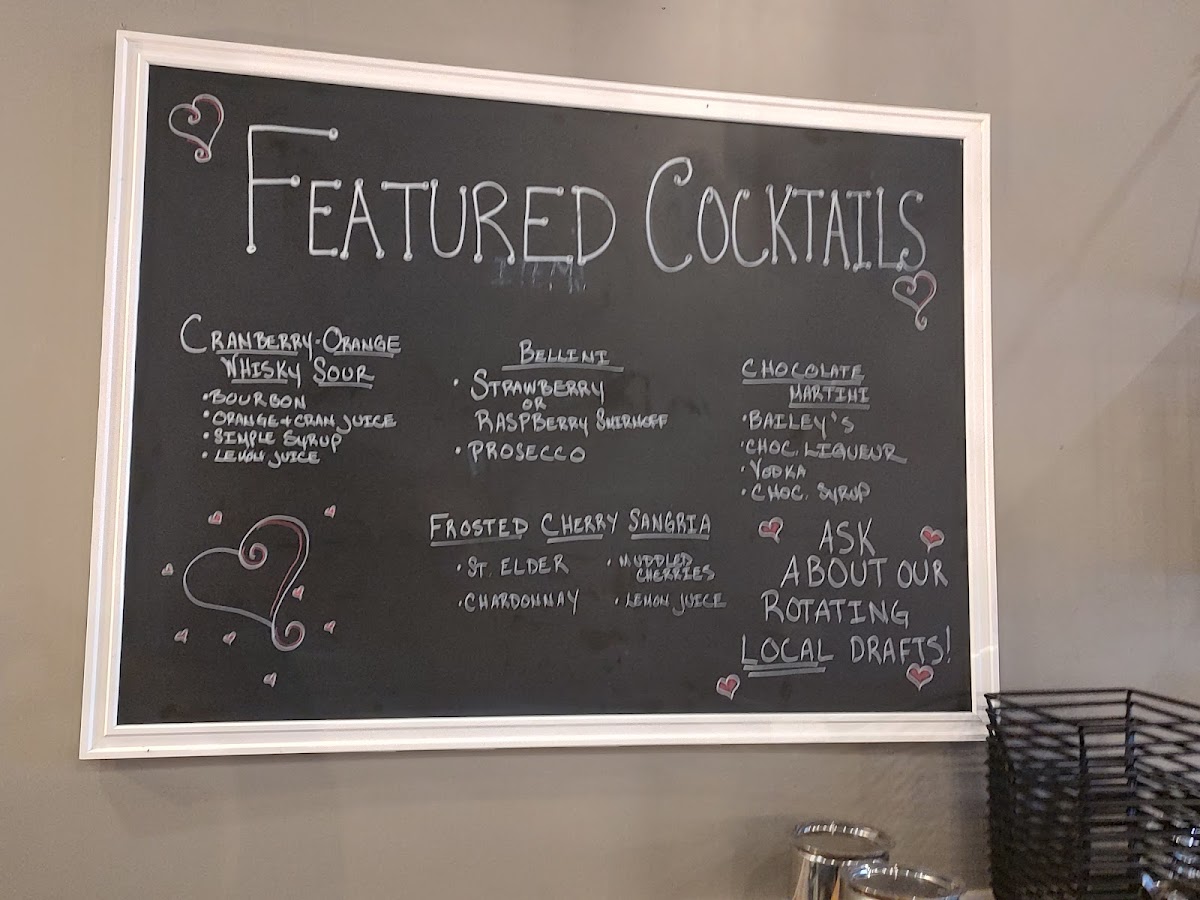 FEATURED COCKTAILS
ITEM
CRANBERRY-ORANGE
WHISKY SOUR
• BOURBON
• ORANGE + CRAN JUICE
• SIMPLE SYRUP
• LEMON JUICE
BELLINI
• STRAWBERRY
OR
RASPBERRY SMIRNOFF
• PROSECCO
CHOCOLATE
MARTINI
• BAILEY'S
• CHOC. LIQUEUR
• VODKA
• CHOC. SYRUP
FROSTED CHERRY SANGRIA
• ST. ELDER
• CHARDONNAY
• MUDDLED
CHERRIES
• LEMON JUICE
ASK
ABOUT OUR
ROTATING
LOCAL DRAFTS!